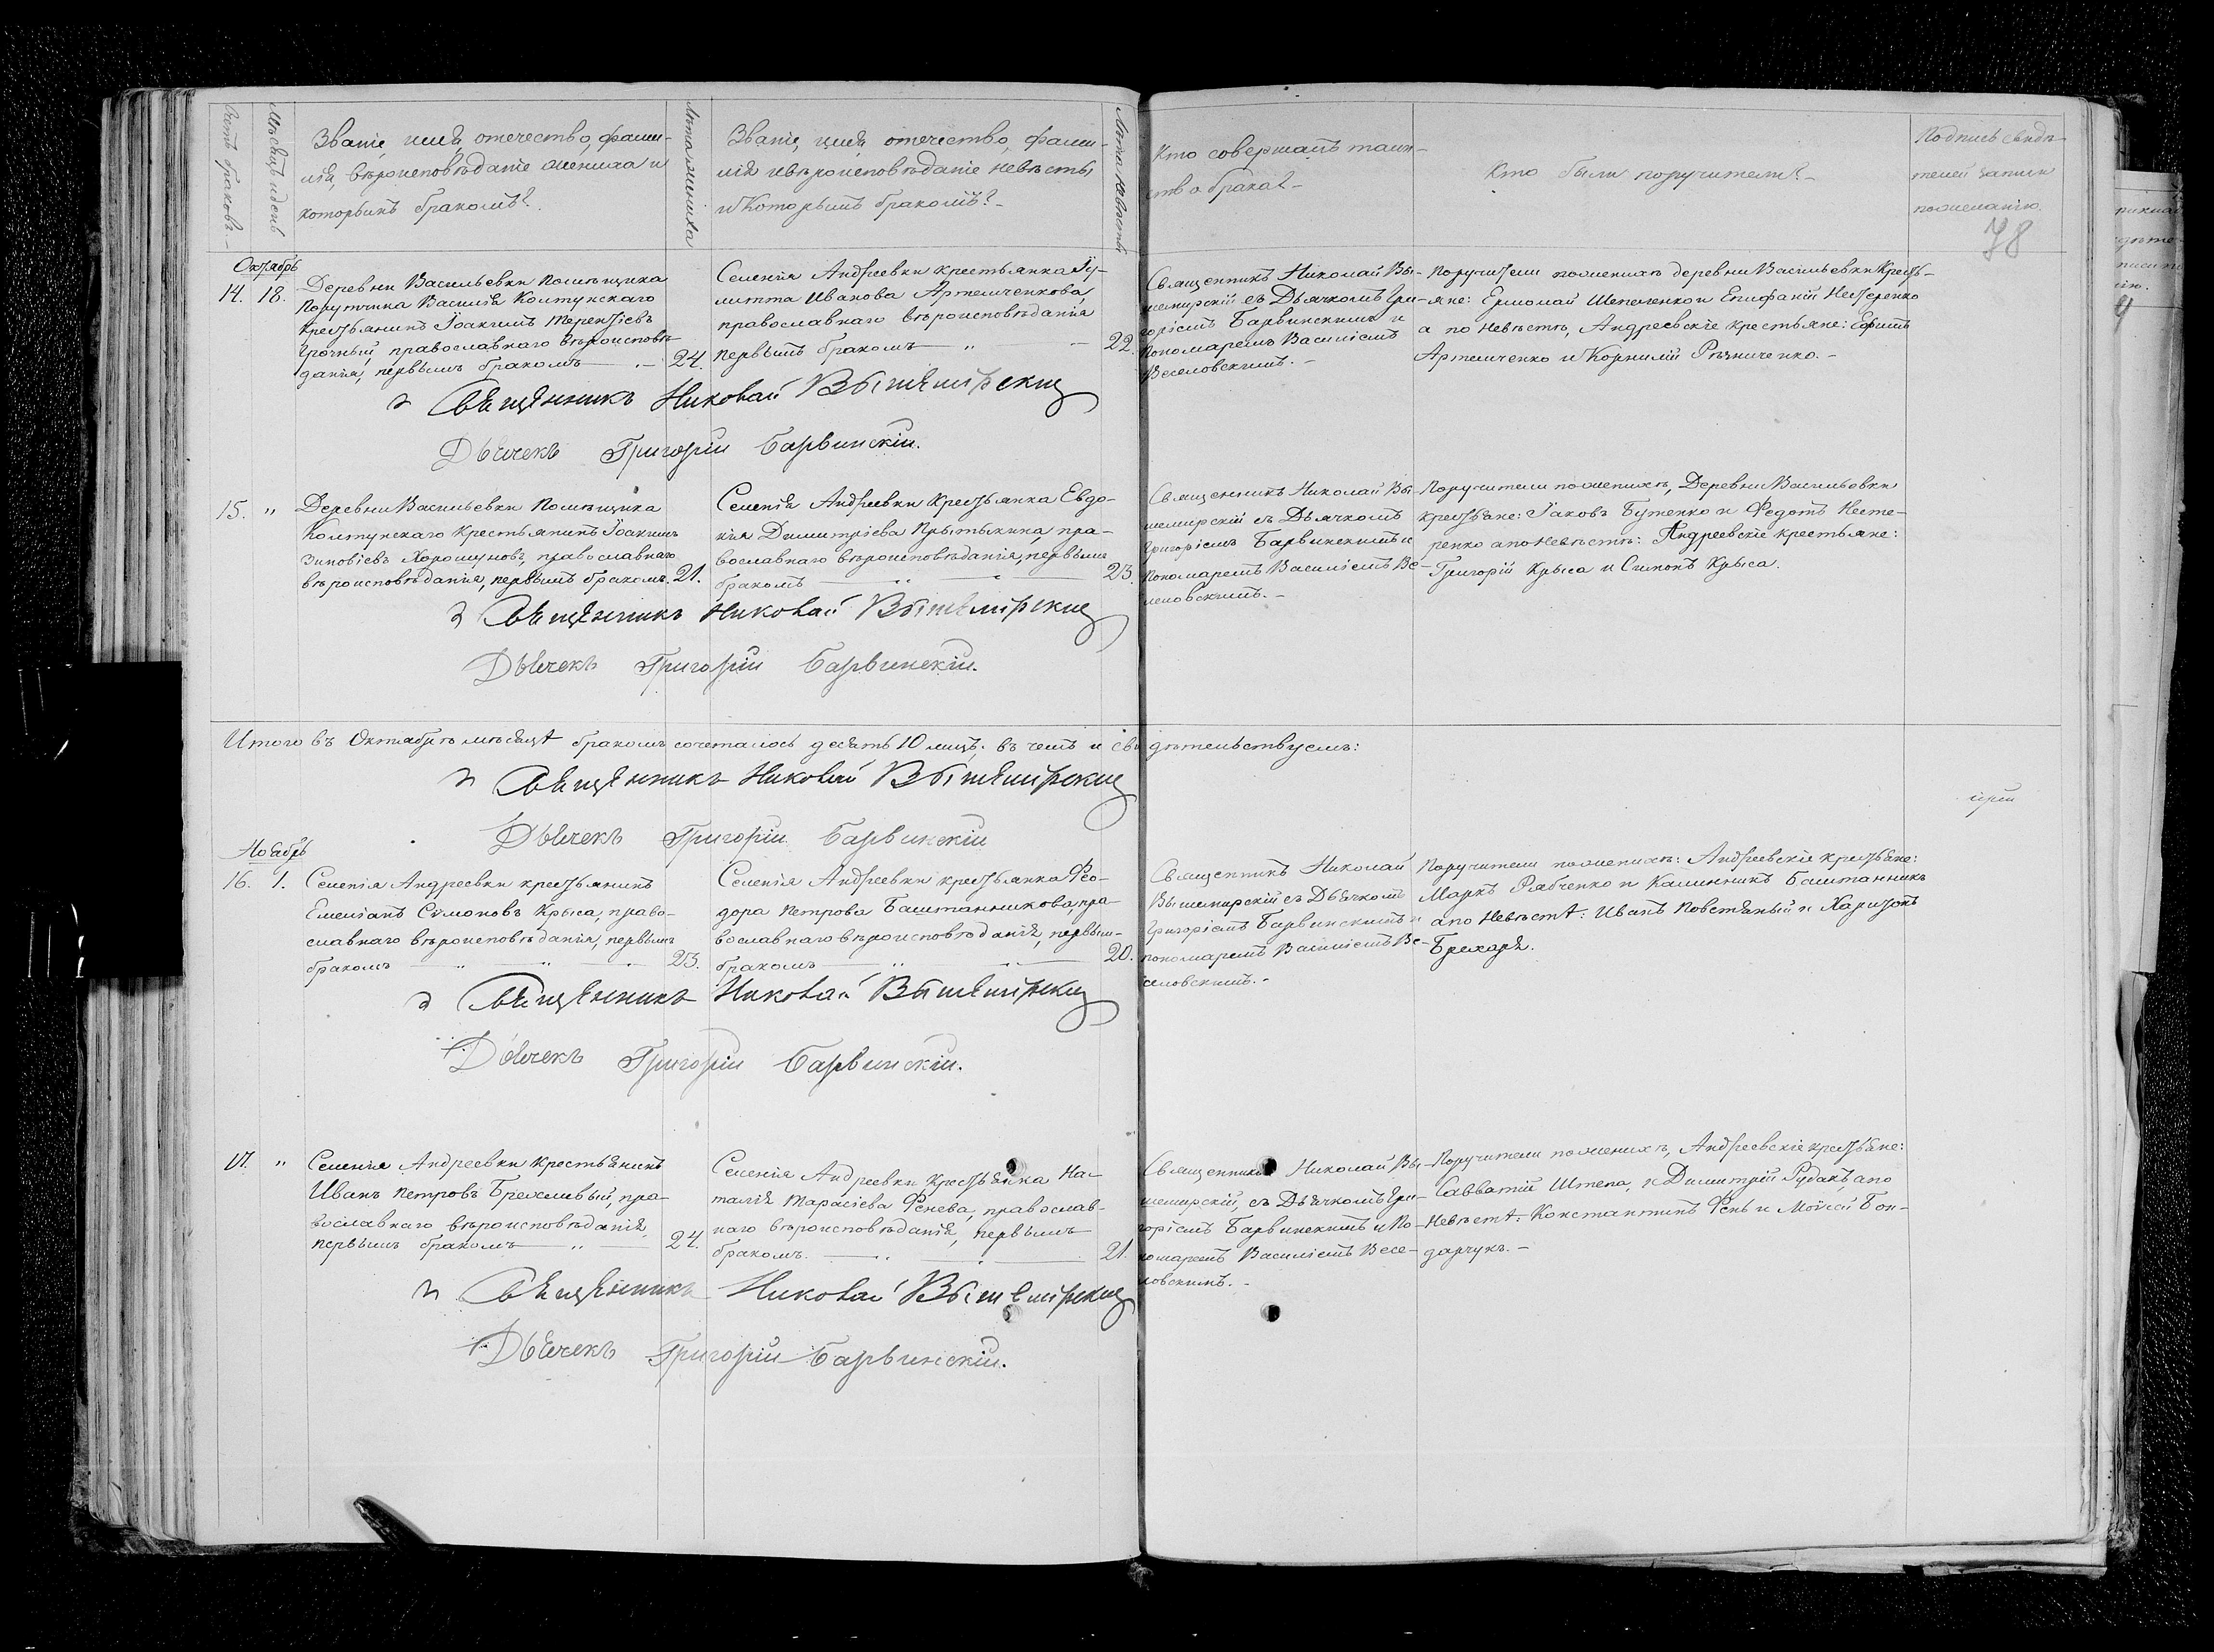 Счетъ браковъ.
Мѣсяцъ и день
Званіе, имя, отечество, фами-
лія, вѣроисповѣданіе жениха и
которымъ бракомъ?
Лѣта жениха
Званіе, имя, отечество, фами-
лія и вѣроисповѣданіе невѣсты
и которымъ бракомъ?
Лѣта невѣсты
Кто совершалъ таин-
ство брака?
Кто были поручители?
Подпись свидѣ-
телей записи
по желанію.
78
Октябрь
14. 18.
Деревни Васильевки Помѣщика
Порутчика Василія Колтунскаго
крестьянинъ Іоакимъ Терентіевъ
православнаго вѣроисповѣ-
данія, первымъ бракомъ 24.
Селенія Андреевки крестьянка Іу-
литта Иванова Артемченкова,
православнаго вѣроисповѣданія
первымъ бракомъ 22.
Священникъ Николай Вы-
шемирскій съ Дьячкомъ Гри-
горіемъ Барвинскимъ и
Пономаремъ Василіемъ
Веселовскимъ.
Поручители по женихѣ деревни Васильевки Кресть-
яне: Ермолай Шепеленко и Епифаній Нестеренко
а по невѣстѣ, Андреевскіе крестьяне: Ефимъ
Артемченко и Корнилій Рѣзниченко.
Священникъ Николай Вышемирский
Дьячекъ Григорій Барвинскій.
15. "
Деревни Васильевки Помѣщика
Колтунскаго крестьянинъ Іоакимъ
Зиновіевъ Хорошуновъ, православнаго
вѣроисповѣданія, первымъ бракомъ. 21.
Селенія Андреевки Крестьянка Евдо-
кія Димитріева Прытыкина, пра-
вославнаго вѣроисповѣданія, первымъ
бракомъ 23.
Священникъ Николай Вы-
шемирскій съ Дьячкомъ
Григоріемъ Барвинскимъ и
Пономаремъ Василіемъ Ве-
селовскимъ.
Поручители по женихѣ, Деревни Васильевки
крестьяне: Іаковъ Бутенко и Федотъ Несте-
ренко а по невѣстѣ: Андреевскіе крестьяне:
Григорій Крыса и Симонъ Крыса.
Священникъ Николай Вышемирский
Дьячекъ Григорій Барвинскій.
Итого въ Октябрѣ мѣсяцѣ бракомъ сочеталось десять 10 лицъ; въ чемъ и свидѣтельствуемъ:
Священникъ Николай Вышемирский
Дьячекъ Григорій Барвинскій
Ноябрь
16. 1.
Селенія Андреевки крестьянинъ
Емеліанъ Симоновъ Крыса, право-
славнаго вѣроисповѣданія, первымъ
бракомъ 23.
Селенія Андреевки крестьянка Фео-
дора Петрова Баштанникова, пра-
вославнаго вѣроисповѣданія, первым-
бракомъ 20.
Священникъ Николай
Вышемирскій съ Дьячкомъ
Григоріемъ Барвинскимъ и
пономаремъ Василіемъ Ве-
селовскимъ.
Поручители по женихѣ: Андреевскіе крестьяне:
Маркъ Рябченко и Калинникъ Баштанникъ
а по невѣстѣ: Иванъ Повстяный и Харитонъ
Брехаря.
Священникъ Николай Вышемирский
Дьячекъ Григорій Барвинскій.
17. "
Селенія Андреевки крестьянинъ
Иванъ Петровъ Брехливый, пра-
вославнаго вѣроисповѣданія,
первымъ бракомъ 24.
Селенія Андреевки Крестьянка На-
талія Тарасіева Фенева, православ-
наго вѣроисповѣданія, первымъ
бракомъ. 21.
Священникъ Николай Вы-
шемирскій, съ Дьячкомъ Гри-
горіемъ Барвинскимъ и По-
номаремъ Василіемъ Весе-
ловскимъ.
Поручители по женихѣ, Андреевскіе крестьяне:
Савватій Штепа, и Димитрій Рудакъ, а по
Невѣстѣ: Константинъ Фень и Моѵсей Бон-
дарчукъ.
Священникъ Николай Вышемирский
Дьячекъ Григорій Барвинскій.